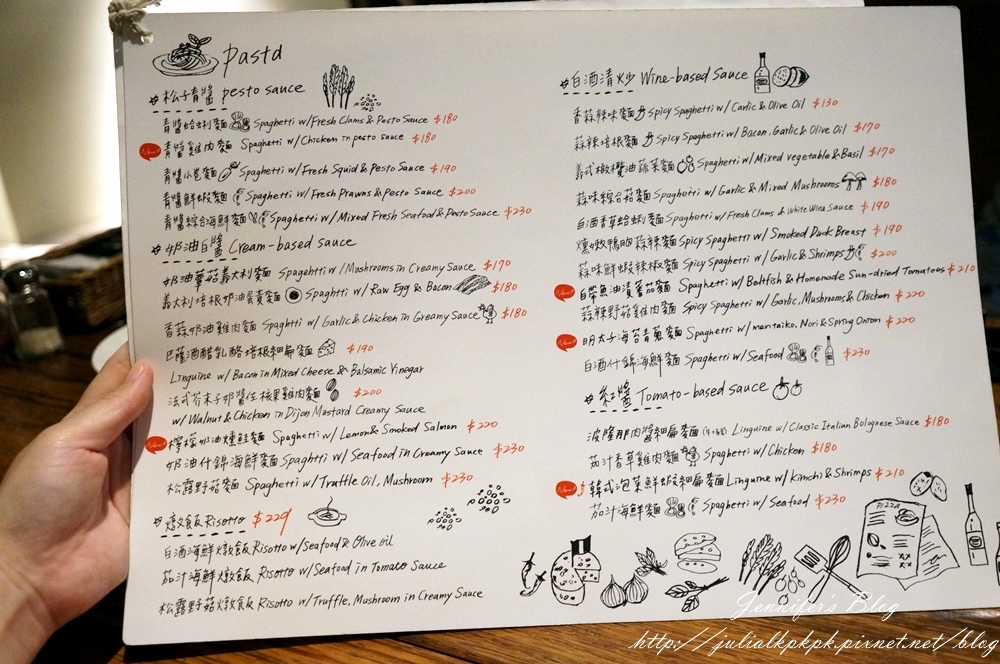 pasta
松子青醬 pesto sauce
青醬蛤蜊麵 Spaghetti w/Fresh Clams & Pesto Sauce $180
New! 青醬雞肉麵 Spaghetti w/Chicken in pesto sauce $180
青醬小卷麵 Spaghetti w/Fresh Squid & Pesto Sauce $190
青醬鮮蝦麵 Spaghetti w/Fresh Prawns & Pesto Sauce $200
青醬綜合海鮮麵 Spaghetti w/Mixed Fresh Seafood & Pesto Sauce $230
奶油白醬 Cream-based sauce
奶油蘑菇義大利麵 Spagehtti w/Mushrooms in Creamy Sauce $170
義大利培根奶油蛋黃麵 Spaghtti w/ Raw Egg & Bacon $180
香蒜奶油雞肉麵 Spaghtti w/ Garlic & Chicken in Creamy Sauce $180
巴薩酒醋乳酪培根細扁麵 $190
Linguine w/ Bacon in Mixed Cheese & Balsamic Vinegar
法式芥末籽醬佐核果雞肉麵 $200
w/ Walnut & Chicken in Dijon Mustard Creamy Sauce
New! 檸檬奶油燻鮭麵 Spaghetti w/ Lemon & Smoked Salmon $220
奶油什錦海鮮麵 Spaghtti w/ Seafood in Creamy Sauce $230
松露野菇麵 Spaghetti w/Truffle Oil, Mushroom $230
燉飯 Risotto $229
白酒海鮮燉飯 Risotto w/Seafood & Olive oil
茄汁海鮮燉飯 Risotto w/Seafood in Tomato Sauce
松露野菇燉飯 Risotto w/Truffle, Mushroom in Creamy Sauce
白酒清炒 Wine-based Sauce
香蒜辣味麵 Spicy Spaghetti w/ Garlic & Olive Oil $130
蒜辣培根麵 Spicy Spaghetti w/ Bacon, Garlic & Olive Oil $170
義式橄欖油蔬菜麵 Spaghetti w/Mixed vegetable & Basil $170
蒜味綜合菇麵 Spaghetti w/ Garlic & Mixed Mushrooms $180
白酒香草蛤蜊麵 Spaghetti w/Fresh Clams & White Wine Sauce $190
燻嫩鴨胸蒜辣麵 Spicy Spaghetti w/ Smoked Duck Breast $190
蒜味鮮蝦辣椒麵 Spicy Spaghetti w/ Garlic & Shrimps $200
New! 白帶魚油漬蕃茄麵 Spaghetti w/ Beltfish & Homenade Sun-dried Tomatoes $210
蒜辣野菇雞肉麵 Spicy Spaghetti w/ Garlic, Mushrooms & Chicken $220
New! 明太子海苔青蔥麵 Spaghetti w/ mantaiko, Nori & Spring Onion $220
白酒什錦海鮮麵 Spaghetti w/Seafood $230
紅醬 Tomato-based sauce
波隆那肉醬細扁麵 Linguine w/ Classic Italian Bolognese Sauce $180
茄汁香草雞肉麵 Spaghetti w/ Chicken $180
New! 韓式泡菜鮮蝦細扁麵 Linguine w/ kimchi & Shrimps $210
茄汁海鮮麵 Spaghetti w/ Seafood $230
PIZZA
Jennifer's Blog
http://julialkpkpk.pixnet.net/blog